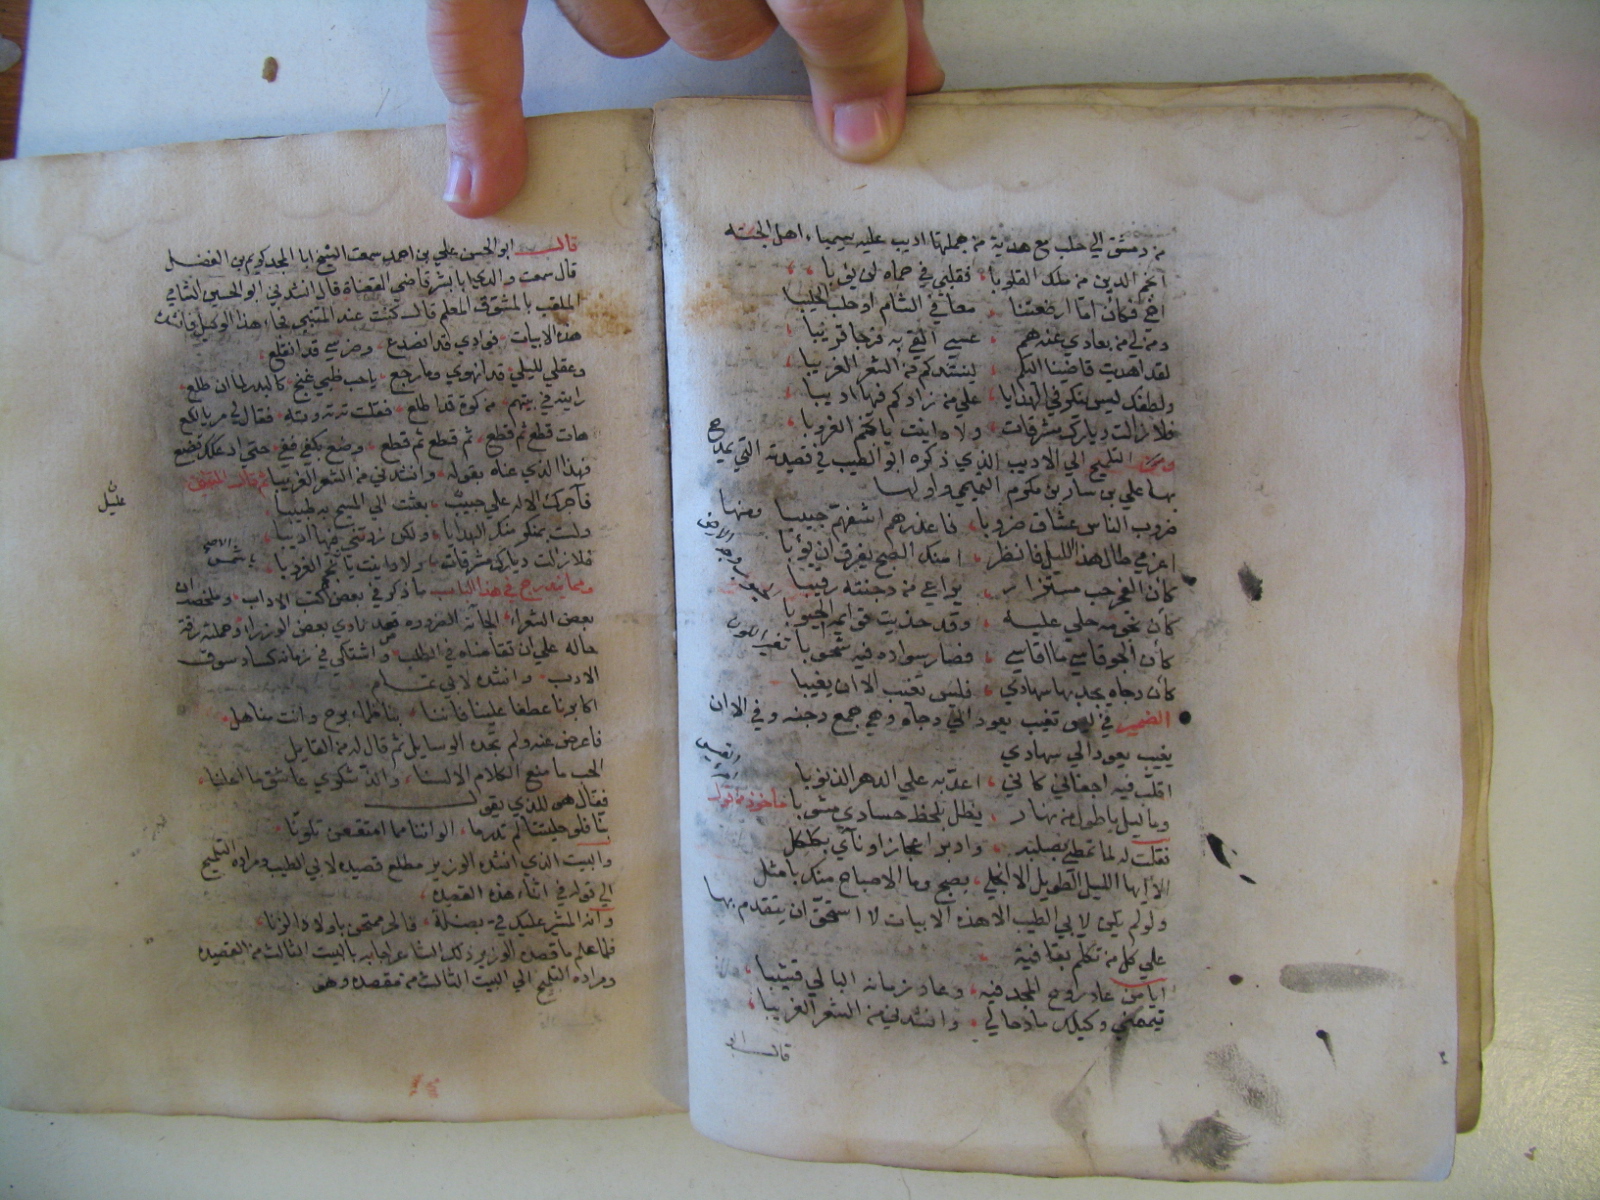 من دمشق الي حلب مع هدية من جملتها اديب عليه سيمياء اهل الجنه
انجم الدين من ملك القلوبا فقلبي في حماه لن يؤبا
اخي فكان اما ارضعتنا معا في الشام او حلب الحليبا
ومن لي من بعادي عنه هم عسي القي به فرجا قريبا
لقد اهديت قاضينا اليكم لينشدكم من الشعر الغريبا
ولطفك ليس ينكر في الهدايا علي من زادكم فيها اديبا
فلا زالت ديارك مشرقات ولا داينت يا نجم الغروبا
التلميح الي الاديب الذي ذكره ابو الطيب في قصيدته التي يمدح
بها علي بن سيار بن مكرم التميمي واولها
ضروب الناس عشاق ضروبا فاعذرهم اشفهم حبيبا ومنها
اعزمي طال هذا الليل فانظر امنك الصبح يفرق ان يؤبا
كأن الفجر حب مستزار يراعي من دجنته رقيبا
كأن نجومه حلي عليه وقد حذيت قوايمه الجبوبا
كأن الجو قاسي ما اقاسي فصار سواده فيه شحوبا تغير اللون
كأن دجاه يجذبها سهادي فليس تغيب الا ان يغيبا
الضمير في ليس تغيب يعود الي دجاه وهي جمع دجنه وفي الا ان
يغيب يعود الي سهادي
اقلب فيه اجفاني كاني اعد به علي الدهر الذنوبا
وما ليل باطول من نهار يظل بلحظ حسادي مشوبا ماخوذ من قول
امرء القيس
فقلت له لما تمطي بصلبه واردف اعجازا وناي بكلكل
الا ايها الليل الطويل الا انجلي بصبح وما الاصباح منك بامثل
ولو لم يكن لابي الطيب الا هذه الابيات لا استحق ان يتقدم بها
علي كل من تكلم بقافية
ايا من عاد روح المجد فيه وعاد زمانه البالي قشيبا
تيممني وكيلك مادحا لي وانشدني من الشعر الغريبا
قال ابو
قال ابو الحسن علي بن احمد سمعت الشيخ ابا المجد كريم بن الفضل
قال سمعت والدي ابا بشر قاضي القضاة قال انشدني ابو الحسين الشامي
الملقب بالمشوق المعلم قال كنت عند المتنبي فجاء هذا الوكيل فانشده
هذه الابيات فوادي قد انصدع وضرسي قد انقلع
وعقلي لليلي قد انهوي وما رجع يا حب ظبي غنج كالبدر لما ان طلع
رايته في بيتهم من كوة قد اطلع فقلت ته ته وته فقال لي مر يا لكع
هات قطع ثم قطع ثم قطع ثم قطع وضع بكفي
فهذا الذي عناه بقوله وانشدني من الشعر الغريبا ثم قال
فآجرك الاله علي عليل بعثت الي المسيح به طبيبا
ولست بمنكر منك الهدايا ولكن زدتني فيها اديبا
فلا زالت ديارك مشرقات ولا داينت يا شمس الغروبا
ومما يندرج في هذا الباب ما ذكر في بعض كتب الاداب وملخصه ان
بعض الشعراء الجأته الضروره قصد نادي بعض الوزراء وحملته رقة
حاله علي ان تقاضاه في الطلب واشتكي في زمانه كساد سوق
الادب وانشده لابي تمام
اكابرنا عطفا علينا فاننا بنا ظماء برح وانت مناهل
فاعرض عنه ولم تجده الوسايل ثم قال له من القايل
الحب ما منع الكلام الالسنا والذ شكوي عاشق ما اعلنا
فقال هو للذي يقول
بنا فلو حليتنا لم تدر ما الواننا مما امتقعن تلونا
والبيت الذي انشده الوزير مطلع قصيده لابي الطيب ومراده التلميح
الي قوله في اثناء هذه القصيده
وانه المشير عليك في بضلة فالحر ممتحن باولاد الزنا
فلما علم ما قصده الوزير ذلك الشاعر اجابه بالبيت الثالث من القصيده
ومراده التلميح الي البيت الثالث من مقصده وهو